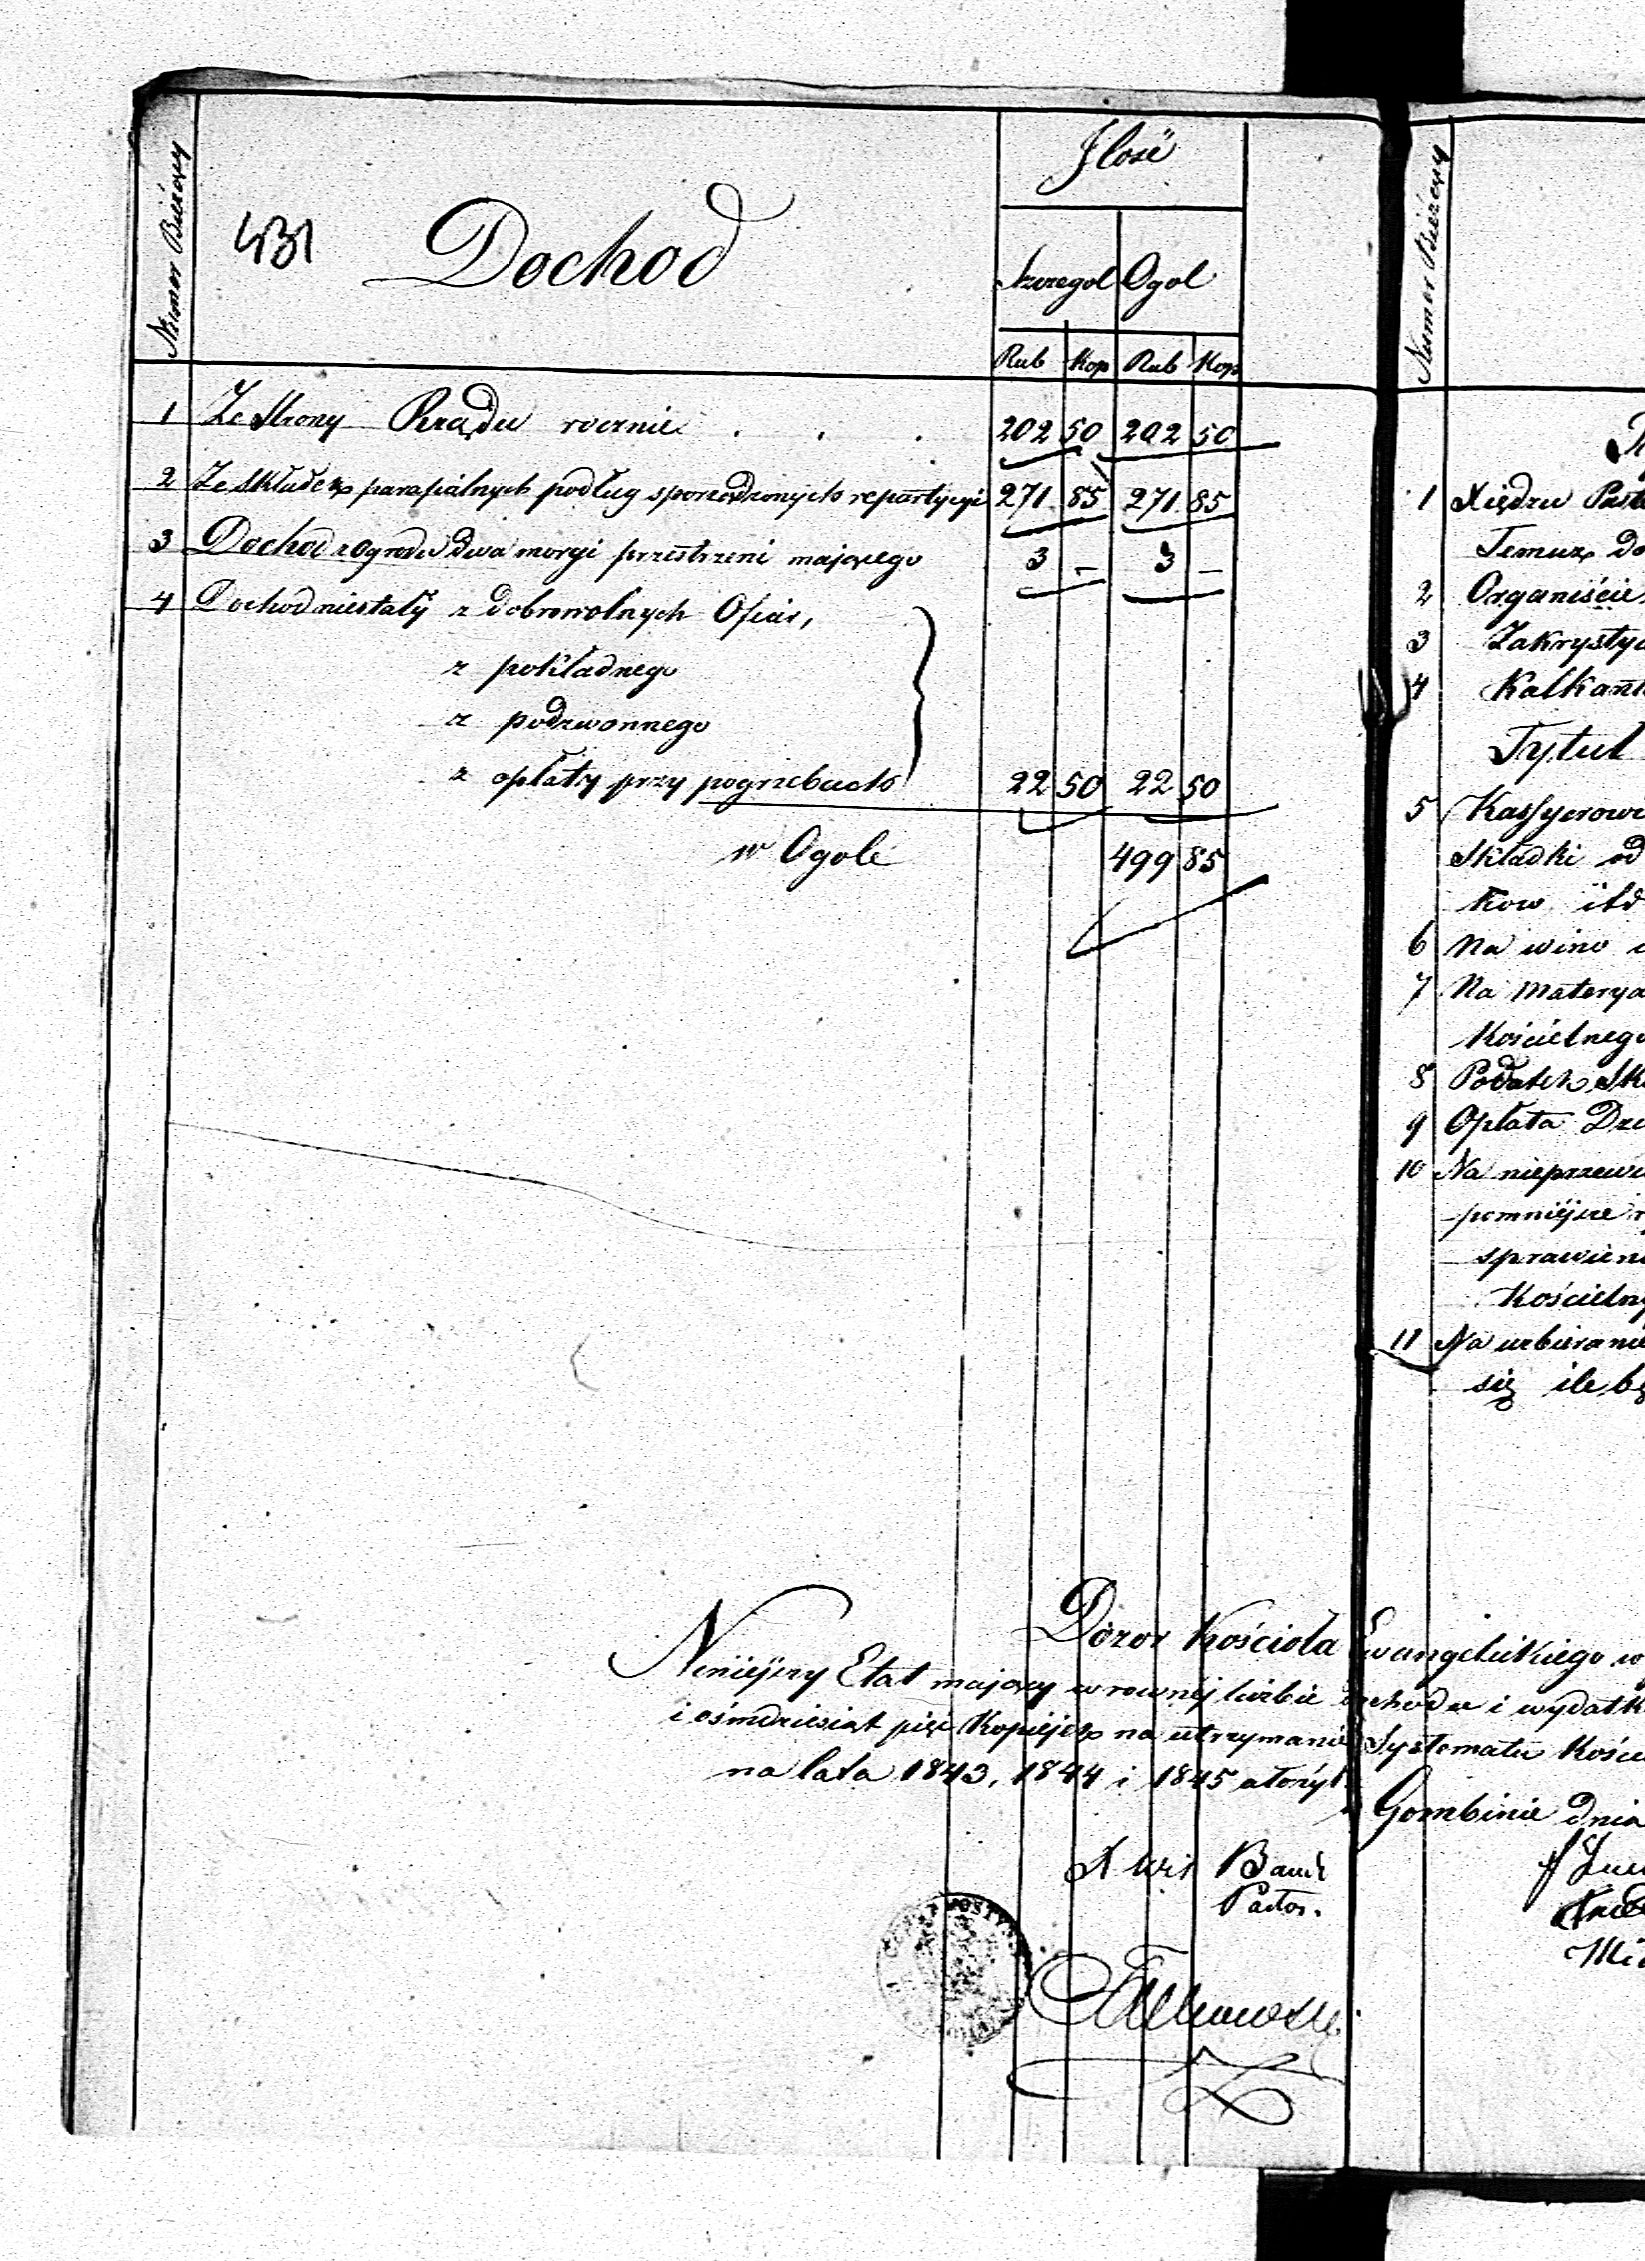 Numer Bieżący
431
Dochod
Jlość
Szczegol Ogol
Rub Kop Rub Kop
1 Ze Strony Rządu rocznie . . . 202 50 202 50
2 Ze Składek parafialnych podług sporządzonych repartycyi 271 85 271 85
3 Dochod z Ogrodu dwa morgi przestrzeni mającego 3 — 3 —
4 Dochod niestały z dobrowolnych Ofiar,
z pokładnego
z podzwonnego
z opłaty przy pogrzebach 22 50 22 50
w Ogole 499 85
Numer Bieżący
1 Xiędzu Past
Temuż do
2 Organiście
3 Zakrysty
4 Kalkan
Tytuł
5 Kassyerowi
Składki od
kow itd
6 Na wino
7 Na materya
Kościelnego
8 Podatek Sk
9 Opłata
10 Na nieprzewi
pomniejsze
sprawieni
Kościelny
11 Na ubieranie
się ile bę
Dozor Kościoła Ewangelickiego w
Niniejszy Etat mający w rownej liczbie dochodu i wydatk
i ośmdziesiąt pięć Kopiejek na utrzymanie Systematu Kości
na lata 1843, 1844 i 1845 ułożył
w Gombinie dnia
Pastor.